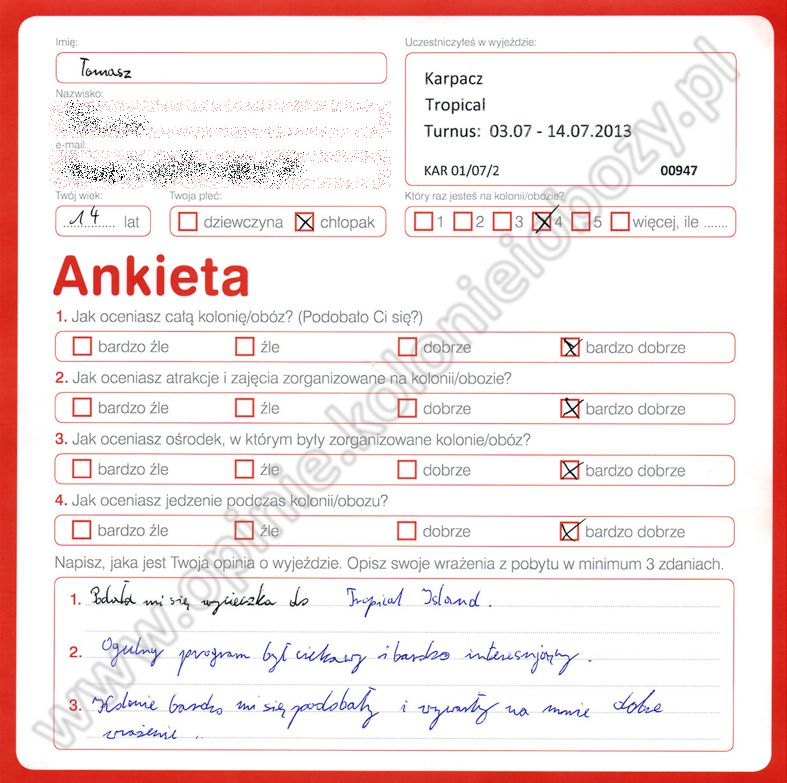 Imię:
Uczestniczyłeś w wyjeździe:
Tomasz
Karpacz
Nazwisko:
Tropical
Turnus: 03.07 - 14.07.2013
e-mail:
KAR 01/07/2 00947
Twój wiek: Twoja płeć: Który raz jesteś na kolonii/obozie?
14 lat dziewczyna chłopak 1 2 3 4 5 więcej, ile .......
Ankieta
1. Jak oceniasz całą kolonię/obóz? (Podobało Ci się?)
bardzo źle źle dobrze bardzo dobrze
2. Jak oceniasz atrakcje i zajęcia zorganizowane na kolonii/obozie?
bardzo źle źle dobrze bardzo dobrze
3. Jak oceniasz ośrodek, w którym były zorganizowane kolonie/obóz?
bardzo źle źle dobrze bardzo dobrze
4. Jak oceniasz jedzenie podczas kolonii/obozu?
bardzo źle źle dobrze bardzo dobrze
Napisz, jaka jest Twoja opinia o wyjeździe. Opisz swoje wrażenia z pobytu w minimum 3 zdaniach.
1. mi się wycieczka do Tropical Island.
2. Ogulny program był ciekawy i bardzo interesujący.
3. Kolonie bardzo mi się podobały i wywarły na mnie dobre
wrażenie.
www.opinie.kolonieiobozy.pl